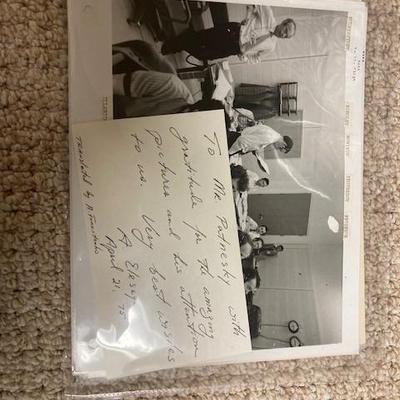 To Mr. Patnesky with
gratitude for the amazing
pictures and his attention
to us. Very best wishes
A Elesy
April 21, 75
translated by A